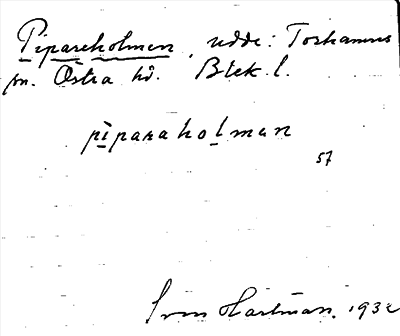 Pipareholmen, udde: Torhamns
sn. Östra hd. Blek. l.
pìparaholman
57
Sven Hartman. 1932